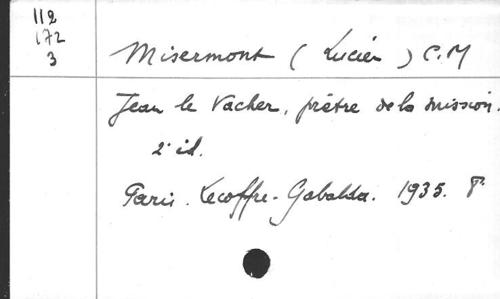 112
172
3
Misermont (Lucien) C.M
Jean le Vacher, prêtre de la mission.
2e éd.
Paris. Lecoffre-Gabalda. 1935.